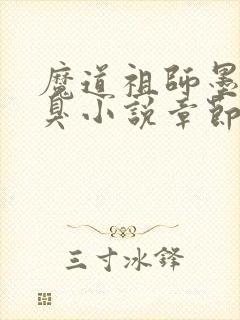 魔道祖師墨
臭小説章節
三寸冰鋒